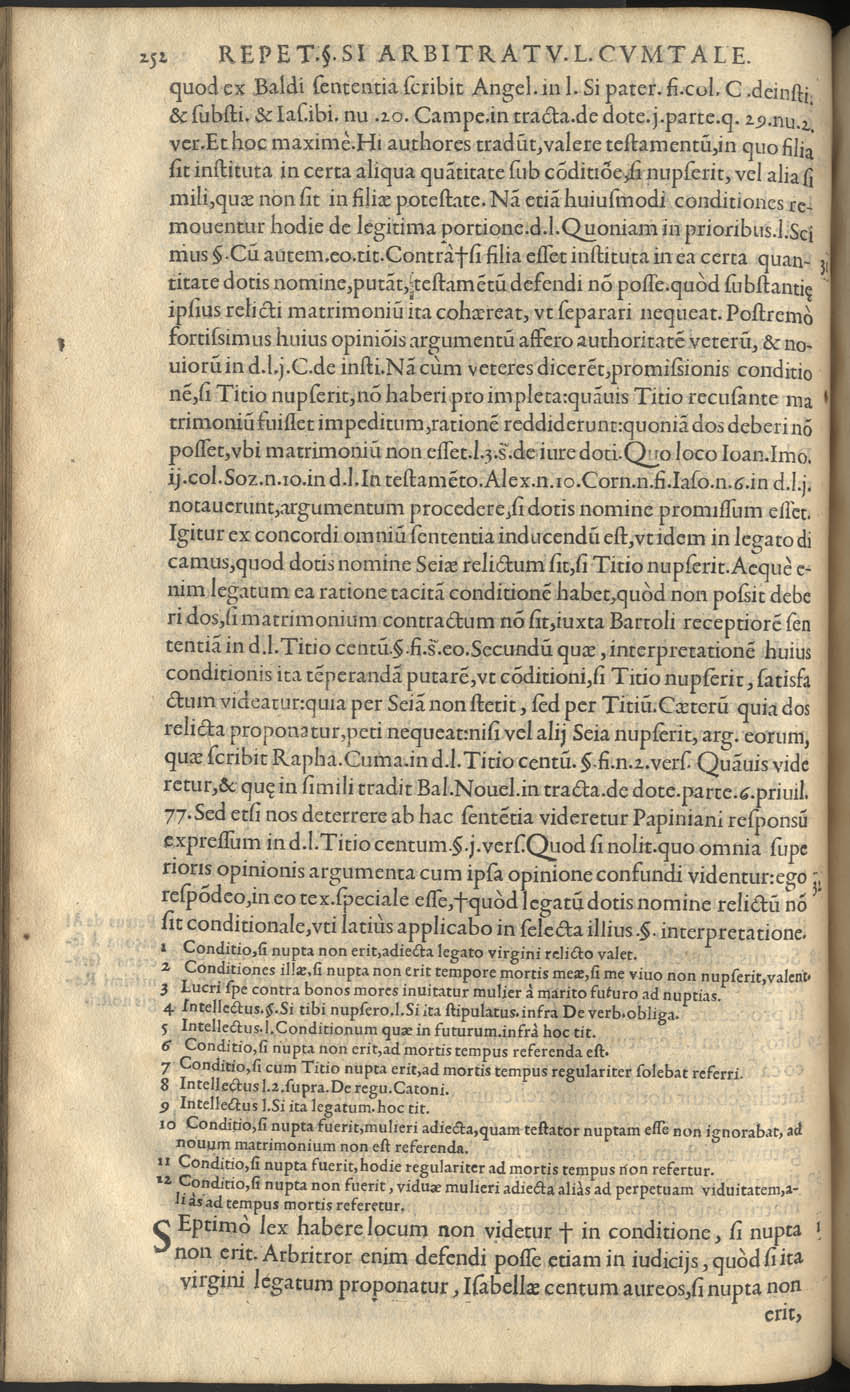 252 REPET.§. SI ARBITRATV. L. CVMTALE.
quod ex Baldi ſententia ſcribit Angel. in l. Si pater. fi.col. C .deinſti.
& ſubſti. & Iaſ.ibi. nu .20. Campe.in tracta.de dote.j.parte.q. 29.nu.2.
ver.Et hoc maximè.Hi authores tradūt,valere teſtamentū,in quo filia
ſit inſtituta in certa aliqua quātitate ſub cōditiōe,ſi nupſerit, vel alia ſi
mili,quæ non ſit in filiæ poteſtate. Nā etiā huiuſmodi conditiones re-
mouentur hodie de legitima portione.d.l.Quoniam in prioribus.l.Sci
mus §.Cū autem.eo.tit.Contrà†ſi filia eſſet inſtituta in ea certa quan- 31
titate dotis nomine,putāt, teſtamētū defendi nō poſſe.quòd ſubſtantię
ipſius relicti matrimoniū ita cohæreat, vt ſeparari nequeat. Poſtremò
fortiſsimus huius opiniōis argumentū affero authoritatē veterū, & no-
uiorū in d.l.j.C.de inſti.Nā cùm veteres dicerēt,promiſsionis conditio
nē,ſi Titio nupſerit,nō haberi pro impleta:quāuis Titio recuſante ma
trimoniū fuiſſet impeditum,rationē reddiderunt:quoniā dos deberi nō
poſſet,vbi matrimoniū non eſſet.l.3.s̃.de iure doti.Quo loco Ioan.Imo.
ij.col.Soz.n.10.in d.l.In teſtamēto.Alex.n.10.Corn.n.fi.Iaſo.n.6.in d.l.j.
notauerunt,argumentum procedere,ſi dotis nomine promiſſum eſſet.
Igitur ex concordi omniū ſententia inducendū eſt,vt idem in legato di
camus,quod dotis nomine Seiæ relictum ſit,ſi Titio nupſerit.Aequè e-
nim legatum ea ratione tacitā conditionē habet,quòd non poſsit debe
ri dos,ſi matrimonium contractum nō ſit,iuxta Bartoli receptiorē ſen
tentiā in d.l.Titio centū.§.fi.s̃.eo.Secundū quæ , interpretationē huius
conditionis ita tēperandā putarē,vt cōditioni,ſi Titio nupſerit , ſatisfa
ctum videatur:quia per Seiā non ſtetit , ſed per Titiū.Cæterū quia dos
relicta proponatur,peti nequeat:niſi vel alij Seia nupſerit, arg. eorum,
quæ ſcribit Rapha.Cuma.in d.l.Titio centū. §.fi.n.2.verſ. Quāuis vide
retur,& quę in ſimili tradit Bal.Nouel.in tracta.de dote.parte.6.priuil.
77.Sed etſi nos deterrere ab hac ſentētia videretur Papiniani reſponsū
expreſſum in d.l.Titio centum.§.j.verſ.Quod ſi nolit.quo omnia ſupe
rioris opinionis argumenta cum ipſa opinione confundi videntur:ego
reſpōdeo,in eo tex.ſpeciale eſſe,†quòd legatū dotis nomine relictū nō
ſit conditionale,vti latiùs applicabo in ſelecta illius .§. interpretatione.
1 Conditio,ſi nupta non erit,adiecta legato virgini relicto valet.
2 Conditiones illæ,ſi nupta non erit tempore mortis meæ,ſi me viuo non nupſerit,valent.
3 Lucri ſpe contra bonos mores inuitatur mulier à marito futuro ad nuptias.
4 Intellectus.§.Si tibi nupſero.l.Si ita ſtipulatus.infra De verb.obliga.
5 Intellectus.l.Conditionum quæ in futurum.infrà hoc tit.
6 Conditio,ſi nupta non erit,ad mortis tempus referenda eſt.
7 Conditio,ſi cum Titio nupta erit,ad mortis tempus regulariter ſolebat referri.
8 Intellectus l.2.ſupra.De regu.Catoni.
9 Intellectus l.Si ita legatum.hoc tit.
10 Conditio,ſi nupta fuerit,mulieri adiecta,quam teſtator nuptam eſſe non ignorabat, ad
nouum matrimonium non eſt referenda.
11 Conditio,ſi nupta fuerit,hodie regulariter ad mortis tempus non refertur.
12 Conditio,ſi nupta non fuerit , viduæ mulieri adiecta aliàs ad perpetuam viduitatem,a-
liàs ad tempus mortis referetur.
SEptimò lex habere locum non videtur † in conditione, ſi nupta 1
non erit. Arbritror enim defendi poſſe etiam in iudicijs, quòd ſi ita
virgini legatum proponatur , Iſabellæ centum aureos,ſi nupta non
erit,